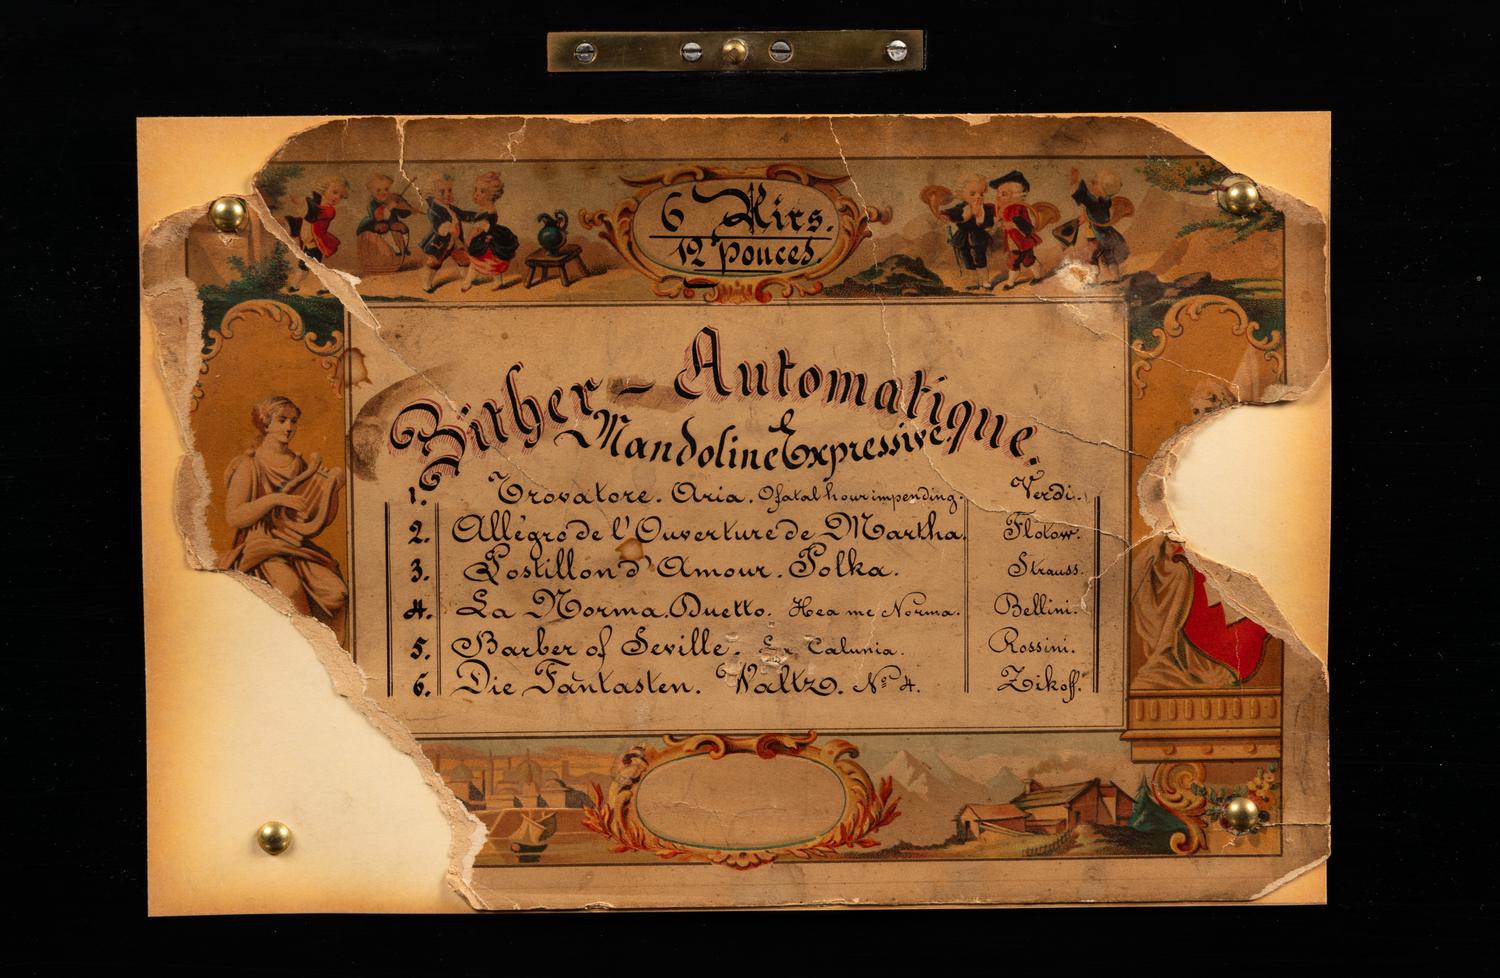 6 Airs.
12 Pouces.
Zither - Automatique.
Mandoline Expressive.
1. Trovatore. Aria. O fatal hour impending. Verdi.
2. Allégro de l'Ouverture de Martha. Flotow.
3. Postillon d'Amour. Polka. Strauss.
4. La Norma. Duetto. Hea me Norma. Bellini.
5. Barber of Seville. La Calunia. Rossini.
6. Die Fantasten. Waltz. No 4. Zikoff.